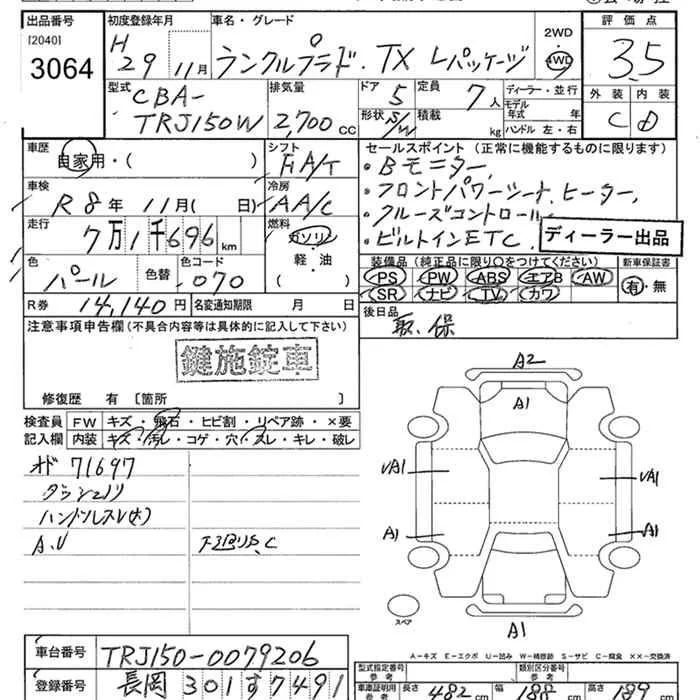 出品番号
[2040]
3064
初度登録年月
H 29 11月
車名・グレード
ランクルプラド・TX Lパッケージ
2WD
・
4WD
評価点
3.5
外装 内装
C D
型式
CBA-
TRJ150W
排気量
2,700 cc
ドア
5
定員
7人
形状 S/W
積載 kg
ディーラー・並行
モデル
年式 年
ハンドル 左・右
車歴
自家用・( )
シフト
FA/T
セールスポイント (正常に機能するものに限ります)
・Bモニター
・フロントパワーシート、ヒーター、
・クルーズコントロール
・ビルトインETC
ディーラー出品
車検
R8年 11月( 日)
冷房
AA/C
走行
7万1千696km
燃料
ガソリン
・
軽・油
( )
色
パール
色替
色コード
070
装備品 (純正品に限り○をつけてください)
PS PW ABS エアB AW
SR ナビ TV カワ
新車保証書
有・無
R券 14,140円
名変通知期限 月 日
後日品
取、保
注意事項申告欄 (不具合内容等は具体的に記入して下さい)
鍵施錠車
修復歴 有 [箇所 ]
検査員
記入欄
FW キズ・飛石・ヒビ割・リペア跡・×要
内装 キズ・汚レ・コゲ・穴・スレ・キレ・破レ
オド 71697
ハンドルスレ(大)
A.V
下廻りS、C
A2
A1
UA1
UA1
A1
A1
A1
スペア
A-キズ E-エクボ U-凹み W-補修跡 S-サビ C-腐食 ××-交換済
車台番号 TRJ150-0079206
登録番号 長岡 301 す 7491
型式指定番号
参考
類別区分番号
参考
車庫証明用
参考
長さ 482 cm
幅 188 cm
高さ 189 cm